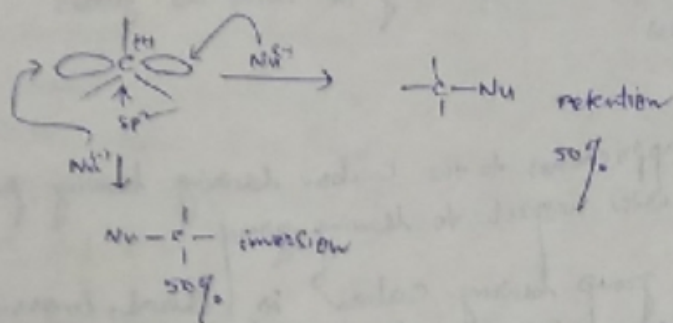 C(+)
Nu(-)
sp²
—C—Nu retention
50%
Nu(-)
Nu—C— inversion
50%